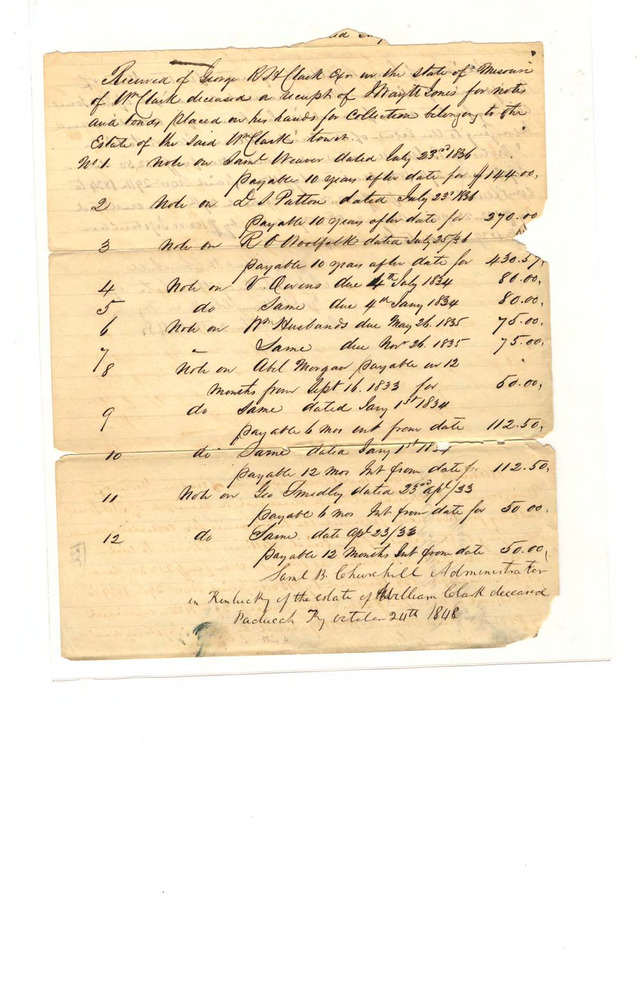 Received of George R H Clark Exr in the state of Missouri
of Wm Clark deceased a receipt of J Wayth Jones for notes
and bonds placed in his hands for Collection belonging to the
Estate of the Said Wm Clark towit
No 1. Note on Saml Weaver dated July 23rd 1836
payable 10 years after date for $144.00,
2 Note on L S Patton dated July 23d 1836
payable 10 years after date for 270.00
3 Note on R O Woolfolk dated July 25/36
payable 10 years after date for 430.57,
4 Note on V. Owens due 4th July 1834 80.00,
5, do Same due 4th Jany 1834 80.00,
6 Note on Wm Husbands due May 26. 1835 75.00,
7 " Same due Novr 26. 1835 75.00,
8 Note on Abel Morgan payable in 12
months from Sept 16. 1833 for 50.00,
9 do Same dated Jany 1st 1834
payable 6 mos int from date 112.50,
10 do Same dated Jany 1st 1834
payable 12 mos Int from date f 112.50,
11 Note on Geo Smedley dated 23rd apl/33
payable 6 mos Int from date for 50 00,
12 do Same date apl 23/33
payable 12 months Int from date 50.00,
Saml B. Churchill Administrator
in Kentucky of the estate of William Clark deceased
Paducah Ky october 24th 1848